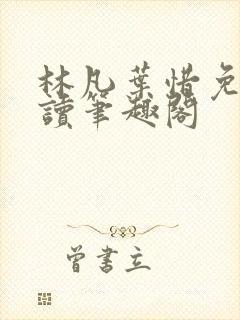 林凡葉惜免
讀筆趣閣
曾書立